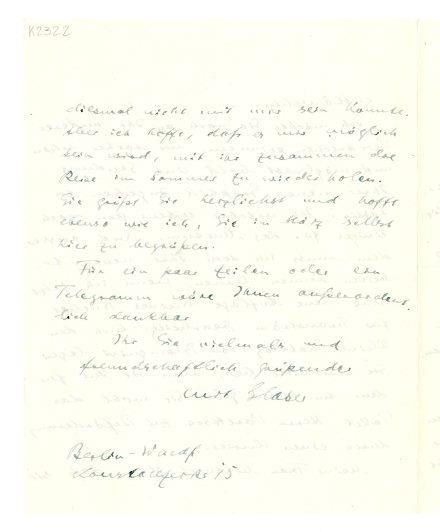 K2322
diesmal nicht mit mir sein konnte.
Aber ich hoffe, daß es mir möglich
sein wird, mit ihr zusammen die
Reise im Sommer zu wiederholen.
Sie grüßt Sie herzlichst und hofft
ebenso wie ich, Sie im März selbst
hier zu begrüßen.
Für ein paar Zeilen oder ein
Telegramm wäre Ihnen außerordent-
lich dankbar
Ihr Sie vielmals und
freundschaftlich grüßender
Curt Glaser
Berlin-